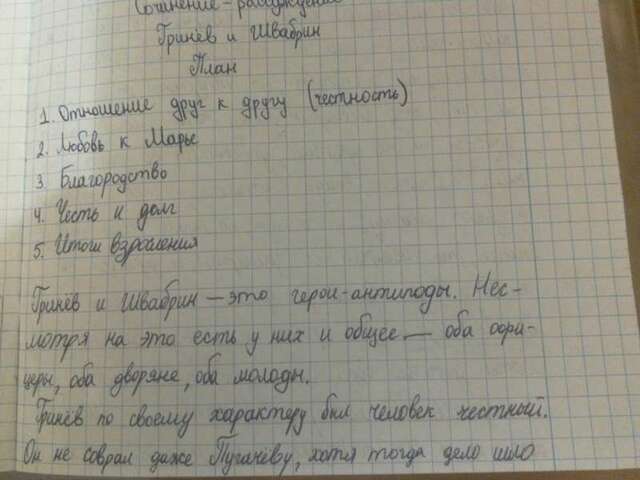 Сочинение-рассуждение
Гринёв и Швабрин
План
1. Отношение друг к другу (честность)
2. Любовь к Марье
3. Благородство
4. Честь и долг
5. Итоги взросления
Гринёв и Швабрин — это герои-антиподы. Нес-
мотря на это есть у них и общее — оба офи-
церы, оба дворяне, оба молоды.
Гринёв по своему характеру был человек честный.
Он не соврал даже Пугачёву, хотя тогда дело шло